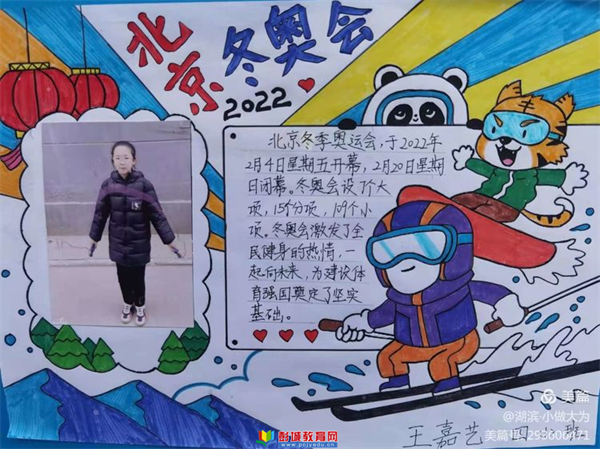 北京冬奥会
2022
北京冬季奥运会,于2022年
2月4日星期五开幕,2月20日星期
日闭幕。冬奥会设7个大
项,15个分项,109个小
项。冬奥会激发了全
民健身的热情,一
起向未来,为建设体
育强国奠定了坚实
基础。
美篇
@湖滨·小做大为
王嘉艺
彭城教育网
www.pcjyedu.cn